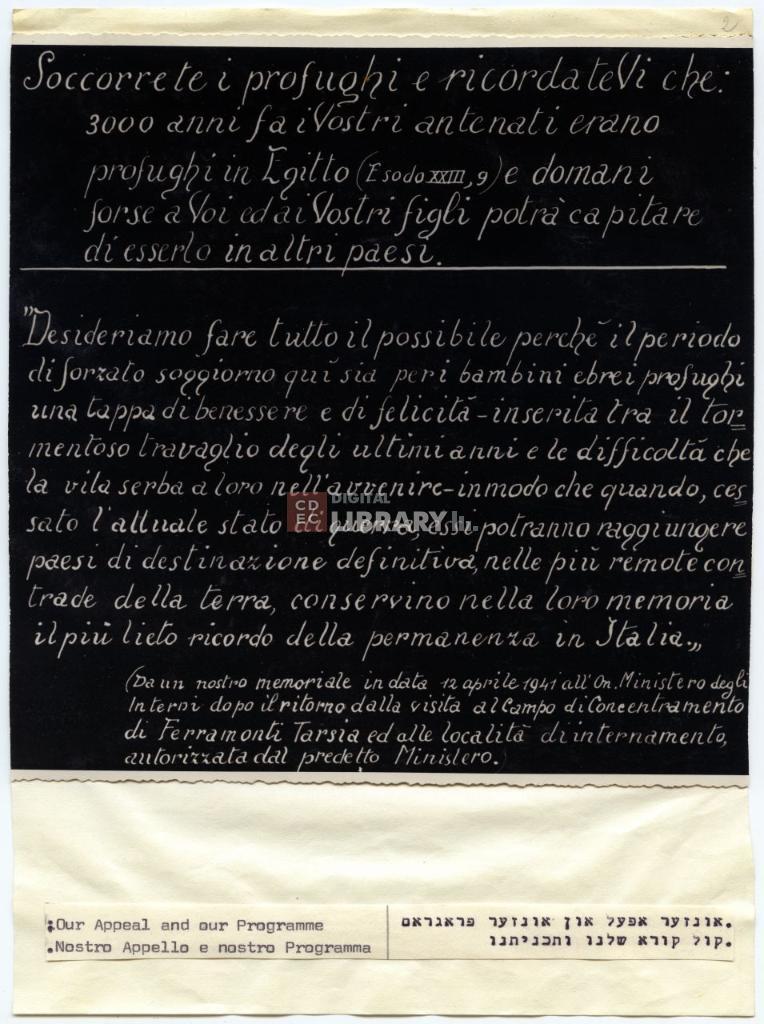 2
Soccorrete i profughi e ricordateVi che:
3000 anni fa i Vostri antenati erano
profughi in Egitto (Esodo XXIII, 9) e domani
forse a Voi ed ai Vostri figli potrà capitare
di esserlo in altri paesi.
"Desideriamo fare tutto il possibile perchè il periodo
di forzato soggiorno quì sia per i bambini ebrei profughi
una tappa di benessere e di felicità - inserita tra il tor=
mentoso travaglio degli ultimi anni e le difficoltà che
la vita serba a loro nell'avvenire - in modo che quando, ces=
sato l'attuale stato di guerra, essi potranno raggiungere
paesi di destinazione definitiva, nelle più remote con=
trade della terra, conservino nella loro memoria
il più lieto ricordo della permanenza in Italia.„
(Da un nostro memoriale in data 12 aprile 1941 all'On. Ministero degli
Interni dopo il ritorno dalla visita al Campo di Concentramento
di Ferramonti Tarsia ed alle località di internamento,
autorizzata dal predetto Ministero.)
CDEC DIGITAL LIBRARY.it
:Our Appeal and our Programme
.Nostro Appello e nostro Programma
אונזער אפעל און אונזער פראגראם.
קול קורא שלנו ותכניתנו.